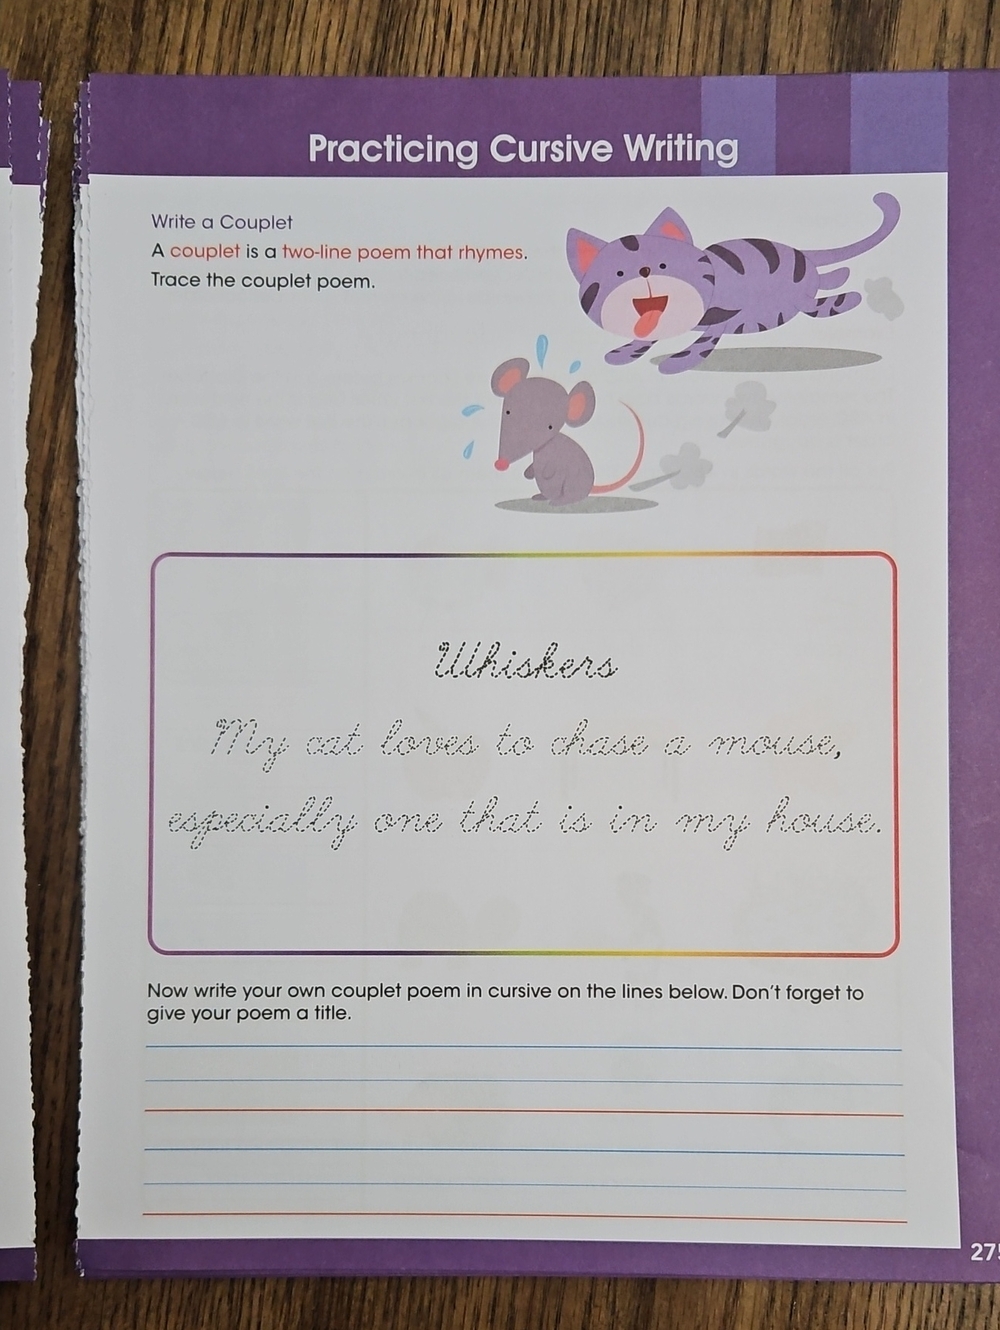 Practicing Cursive Writing
Write a Couplet
A couplet is a two-line poem that rhymes.
Trace the couplet poem.
Whiskers
My cat loves to chase a mouse,
especially one that is in my house.
Now write your own couplet poem in cursive on the lines below. Don't forget to
give your poem a title.